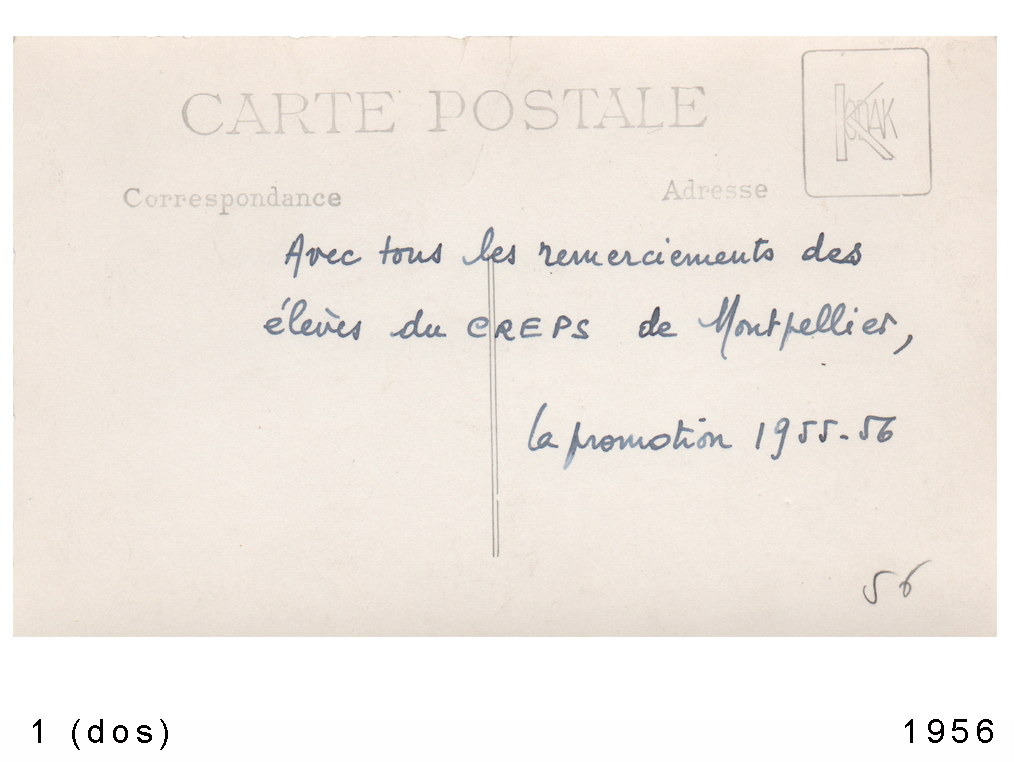 CARTE POSTALE
KODAK
Correspondance
Adresse
Avec tous les remerciements des
élèves du CREPS de Montpellier,
la promotion 1955-56
56
1 (dos)
1956